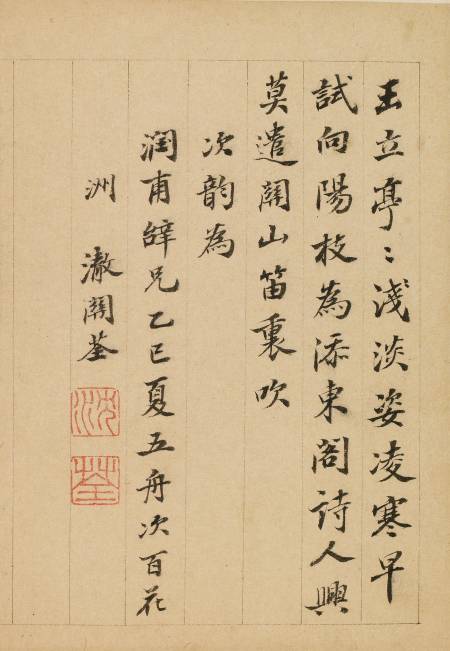 玉立亭〻淺淡姿凌寒早
試向陽枝為添東閣詩人興
莫遣關山笛裏吹
次韵為
潤甫辞兄乙巳夏五舟次百花
洲 澉關荃
沈
荃